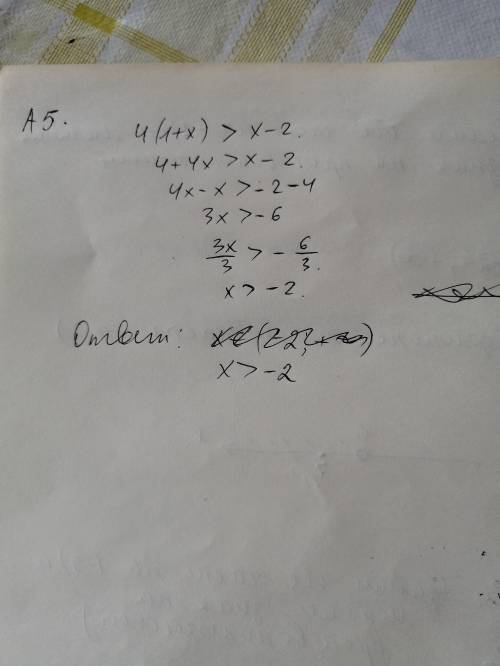 А 5.
4(1+x) > x-2.
4+4x > x-2.
4x-x > -2-4
3x > -6
3x/3 > -6/3.
x > -2.
Ответ:
x > -2